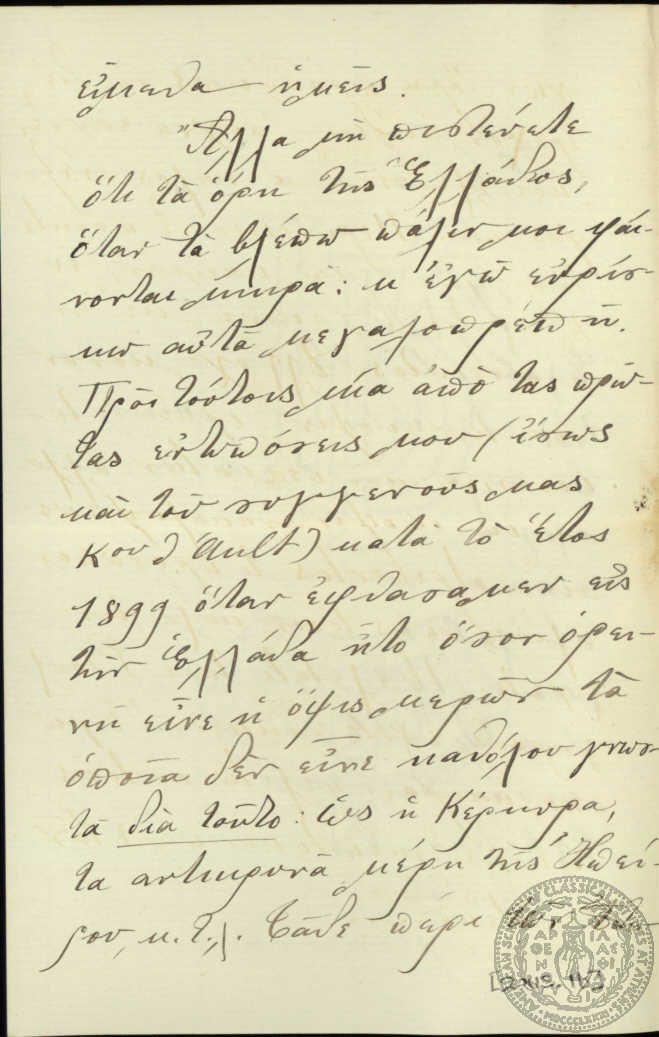 εἴμεθα ἡμεῖς.
"Ἀλλα μὴ πιστεύετε
ὅτι τὰ ὄρη τῆς Ἑλλάδος,
ὅταν τὰ βλέπω πάλιν μοι φαί-
νονται μικρά: κ' ἐγὼ εὑρίσ-
κω αὐτὰ μεγαλοπρέπῆ.
Πρὸς τούτοις μία ἀπὸ τας πρώ-
τας ἐντυπώσεις μου (ἴσως
καὶ τοῦ συγγενοῦς μας
Κου d'Ault) κατὰ τὸ ἔτος
1899 ὅταν ἐφθάσαμεν εἰς
τὴν Ἑλλάδα ἦτο ὅσον ὀρει-
νὴ εἶνε ἡ ὄψις μερῶν τὰ
ὁποῖα δὲν εἶνε καθόλου γνωσ-
τὰ διὰ τοῦτο: ὡς ἡ Κέρκυρα,
τα αντικρυνὰ μέρη τῆς Ἠπεί-
ρου, κ.τ.λ. περι
AMERICAN SCHOOL OF CLASSICAL STUDIES AT ATHENS
ΠΑΡΘΕΝΟΙ ΦΙΛΑΣ
MDCCCLXXXI